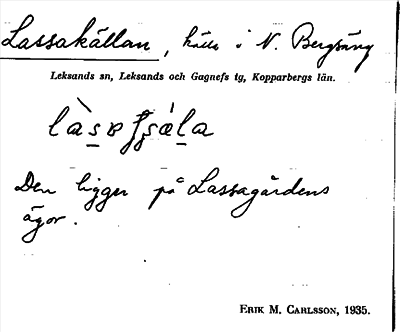 Lassakällan, källa i N. Bergsäng
Leksands sn, Leksands och Gagnefs tg, Kopparbergs län.
Den ligger på Lassagårdens
ägor.
ERIK M. CARLSSON, 1935.